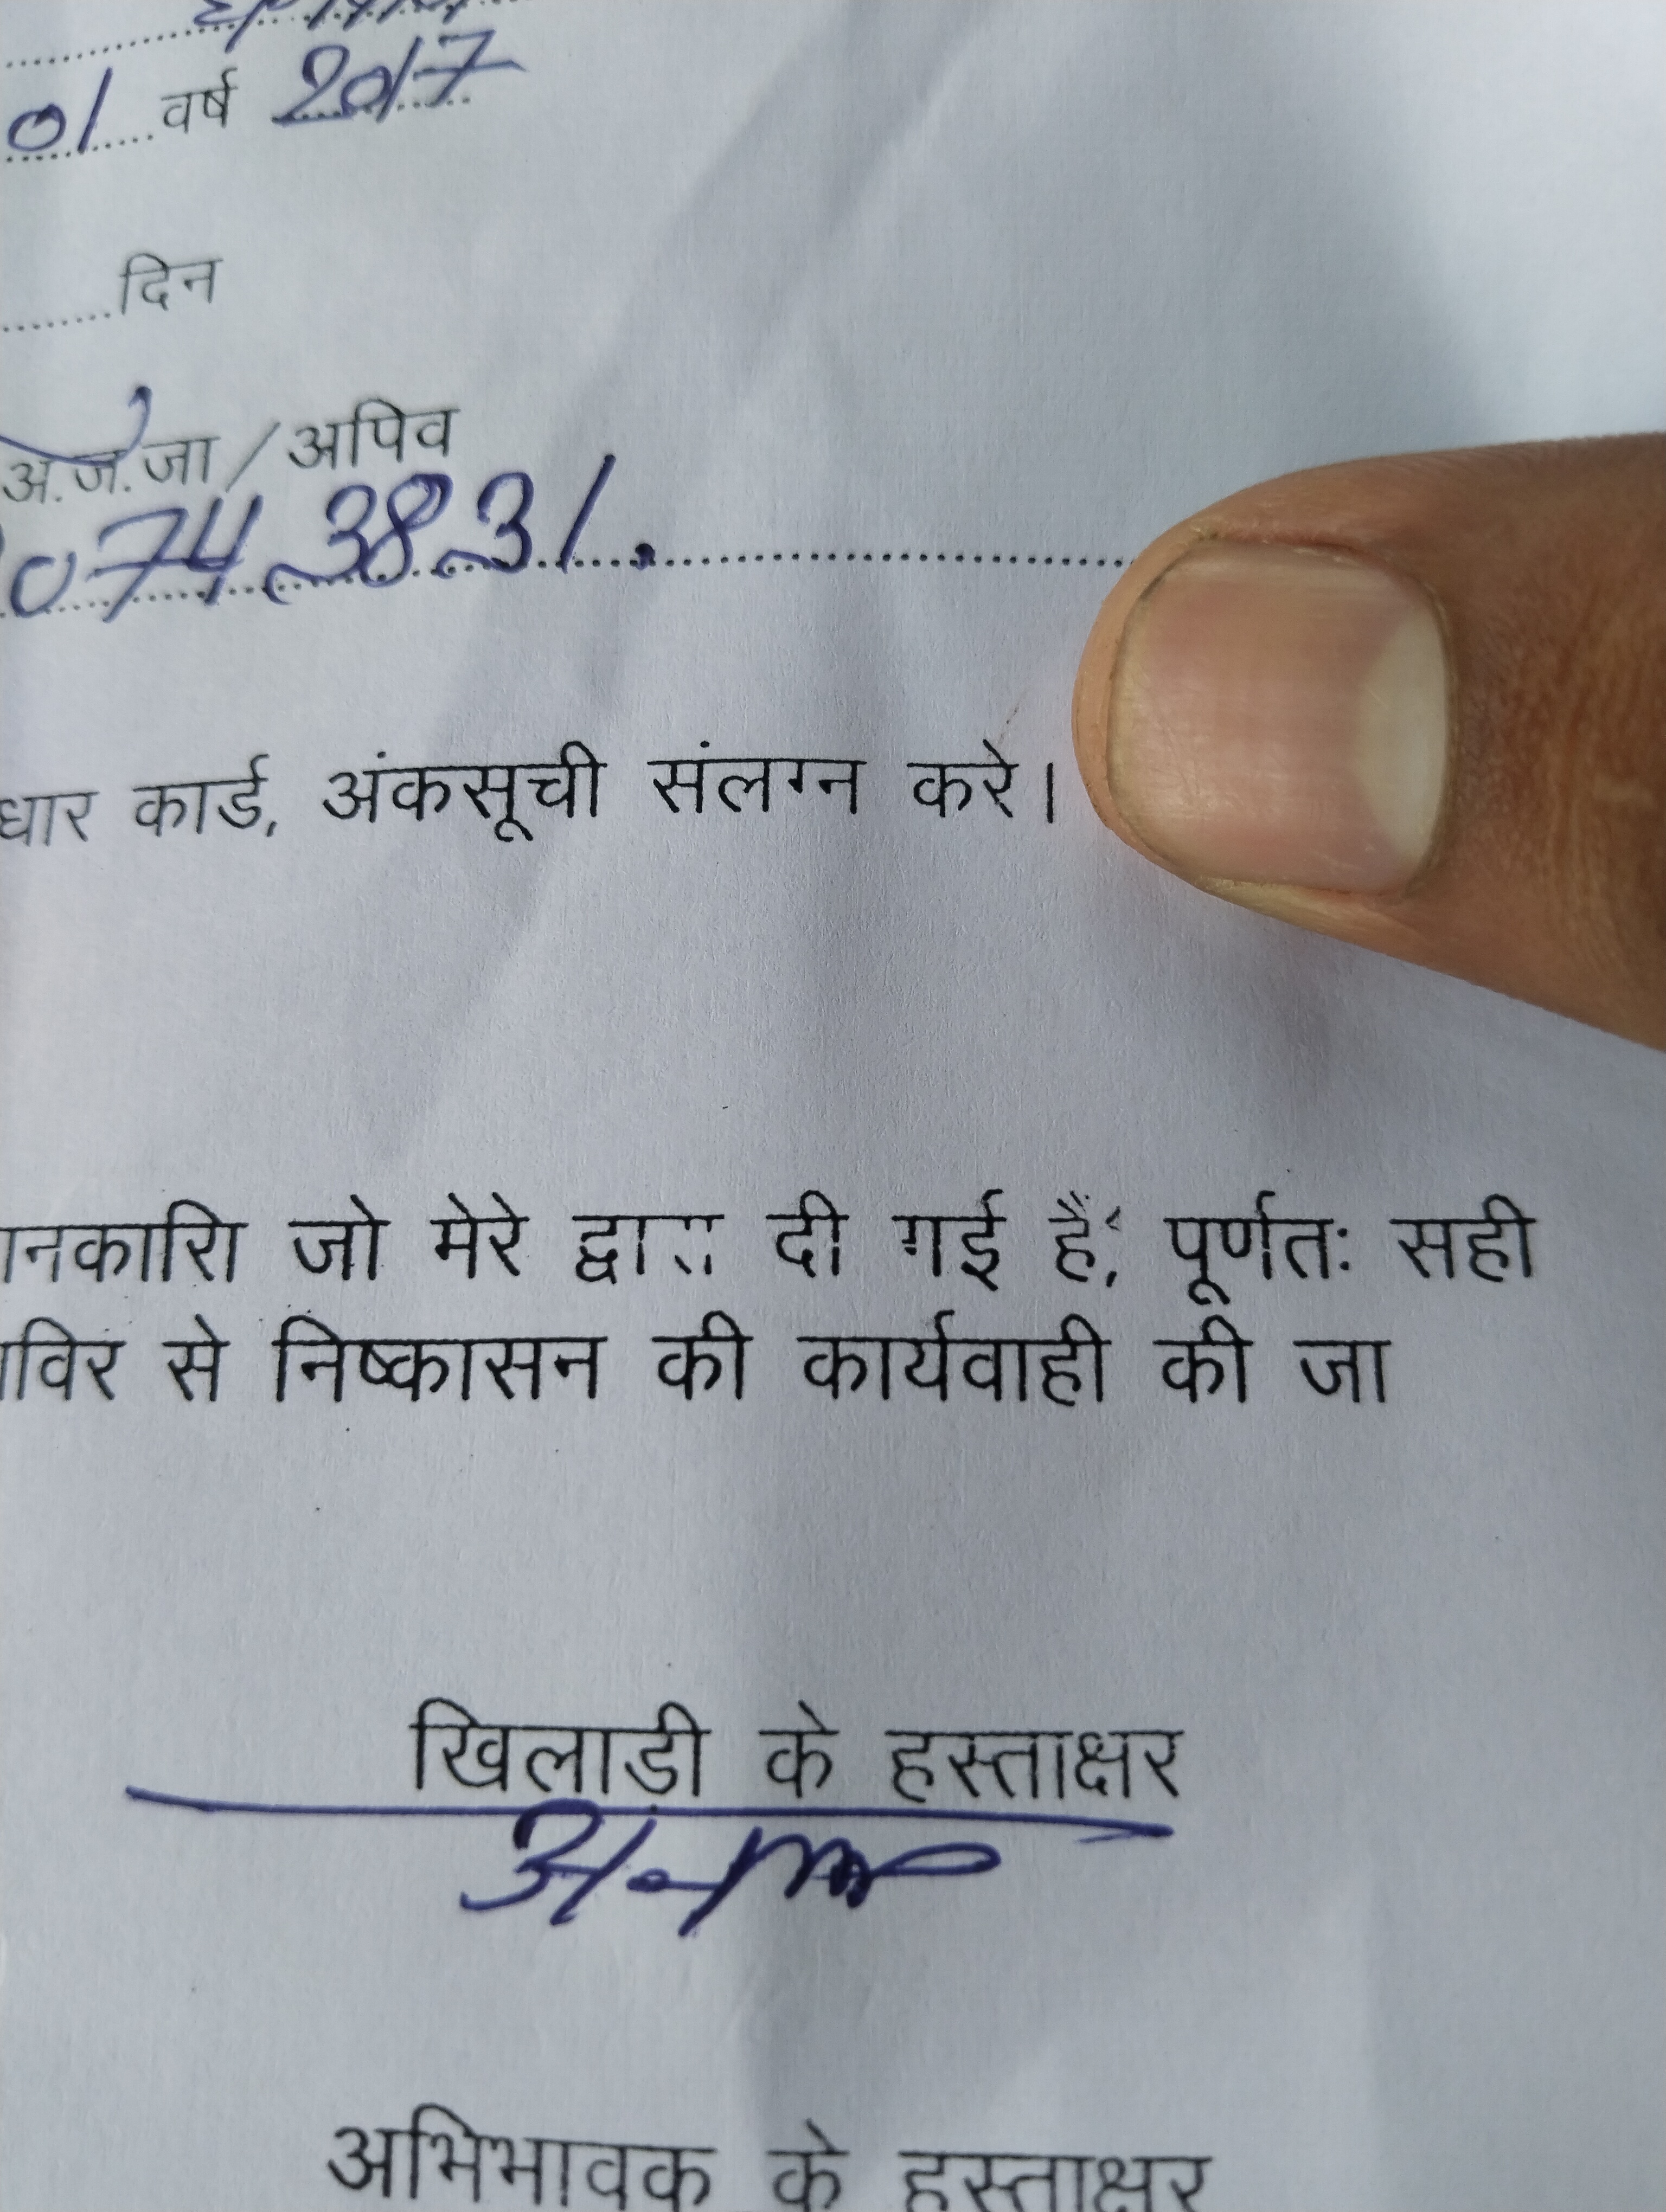 01 वर्ष 2017
दिन
अ.ज.जा / अपिव
0743831.
धार कार्ड, अंकसूची संलग्न करे।
ानकारिा जो मेरे द्वारा दी गई है, पूर्णतः सही
विर से निष्कासन की कार्यवाही की जा
खिलाडी के हस्ताक्षर
अभिभावक के हस्ताक्षर